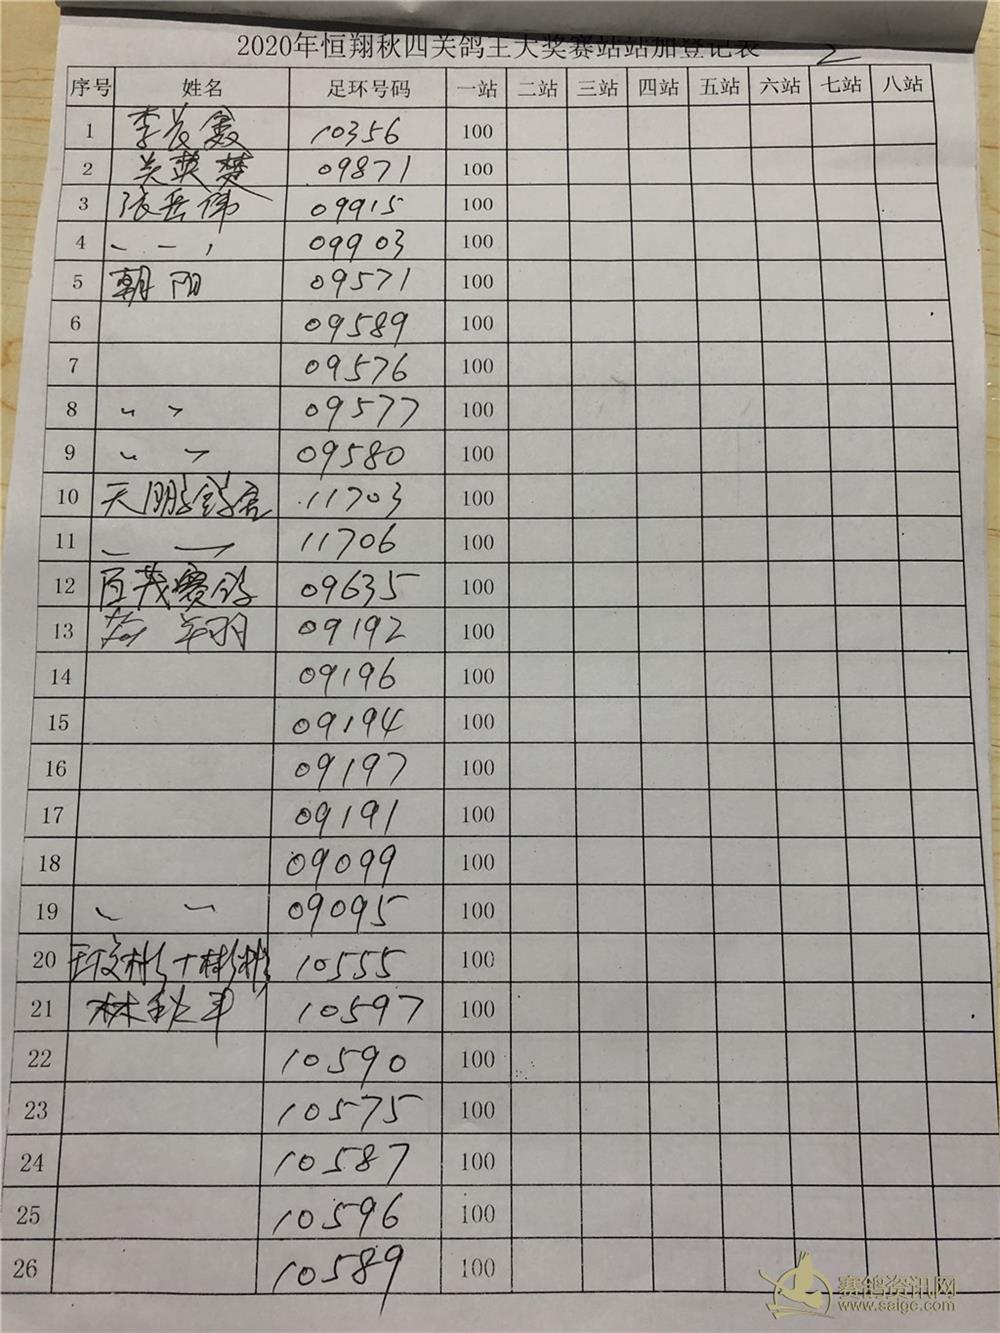 2020年恒翔秋四关鸽王大奖赛站站加登记表 2
序号 姓名 足环号码 一站 二站 三站 四站 五站 六站 七站 八站
1 李 10356 100
2 关英楚 09871 100
3 张岳伟 09915 100
4 〃 09903 100
5 朝阳 09571 100
6 09589 100
7 09576 100
8 〃 〃 09577 100
9 〃 〃 09580 100
10 天鹏鸽舍 11703 100
11 〃 〃 11706 100
12 百茂赛鸽 09635 100
13 09192 100
14 09196 100
15 09194 100
16 09197 100
17 09191 100
18 09099 100
19 〃 〃 09095 100
20 10555 100
21 林秋平 10597 100
22 10590 100
23 10575 100
24 10587 100
25 10596 100
26 10589 100
赛鸽资讯网
www.saigc.com